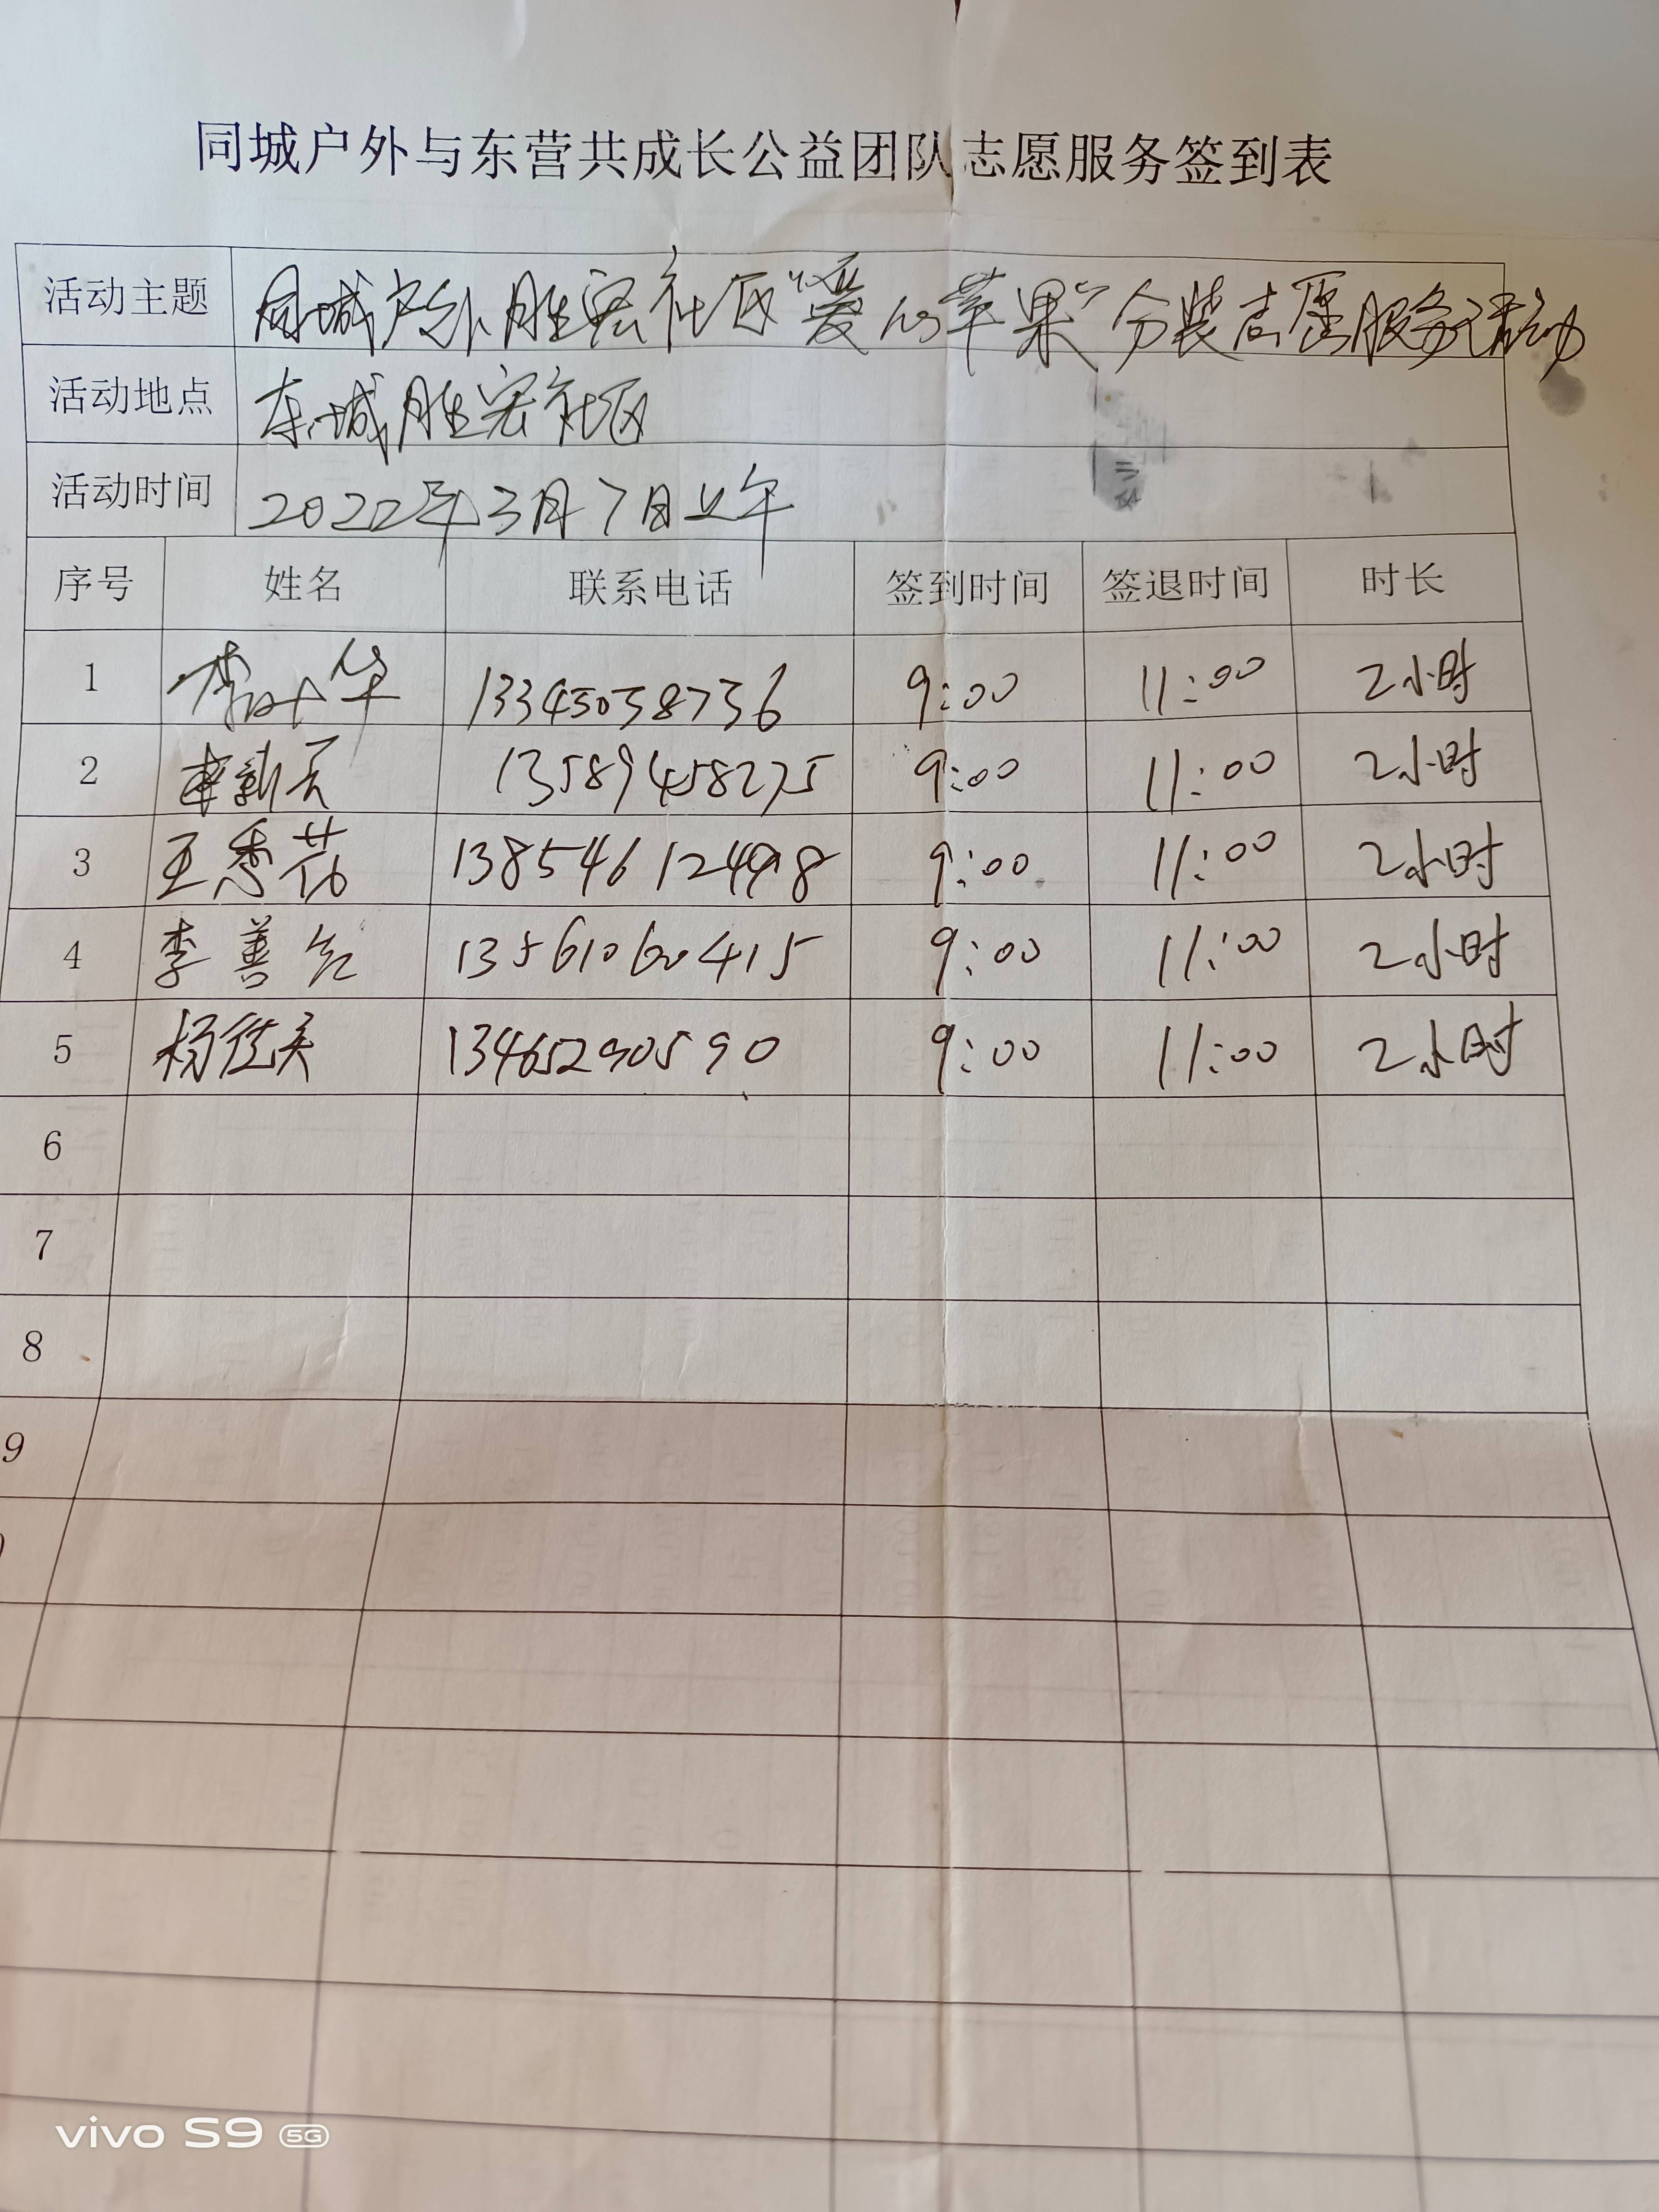 同城户外与东营共成长公益团队志愿服务签到表
活动主题 同城户外胜宏社区“爱心苹果”分装志愿服务活动
活动地点 东城胜宏社区
活动时间 2022年3月7日上午
序号 姓名 联系电话 签到时间 签退时间 时长
1 13345058736 9:00 11:00 2小时
2 13589458275 9:00 11:00 2小时
3 王秀花 9:00 11:00 2小时
4 李善 13561060415 9:00 11:00 2小时
5 杨 13465290590 9:00 11:00 2小时
6
7
8
9
vivo S9 5G